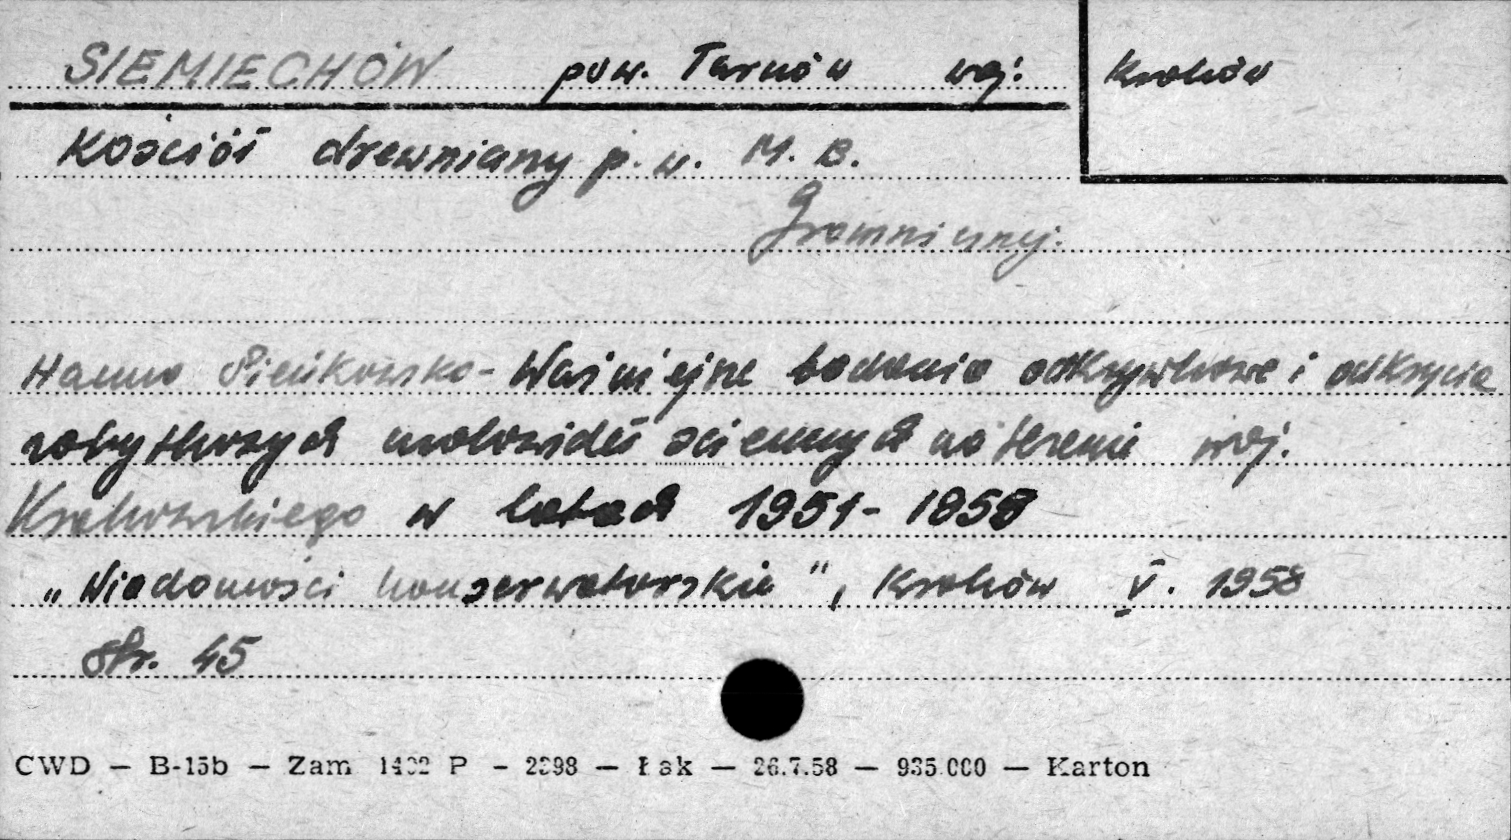 SIEMIECHÓW pow. Tarnów woj: Kraków
Kościół drewniany p. w. M. B.
Gromnicznej.
Hanna Pieńkowska - Ważniejsze badania odkrywkowe i odkrycia
zabytkowych malowideł ściennych na terenie woj.
Krakowskiego w latach 1951 - 1958
„Wiadomości konserwatorskie", Kraków V. 1958
str. 45
CWD — B-15b — Zam 1402 P — 2398 — Łak — 26.7.58 — 935.000 — Karton